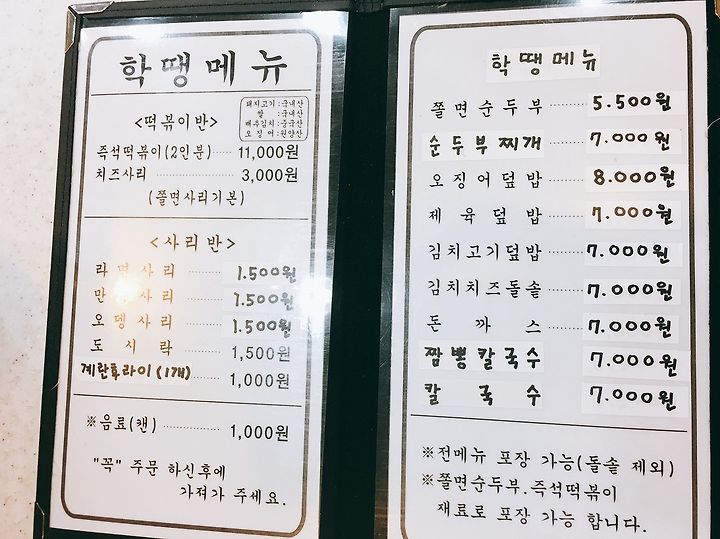 학땡메뉴
<떡볶이반>
돼지고기:국내산
쌀 :국내산
배추김치:중국산
오징어:원양산
즉석떡볶이(2인분) 11,000원
치즈사리 3,000원
(쫄면사리기본)
<사리반>
라면사리 1.500원
만 사리 1.500원
오뎅사리 1.500원
도시락 1,500원
계란후라이(1개) 1,000원
※음료(캔) 1,000원
"꼭" 주문 하신후에
가져가 주세요.
학땡메뉴
쫄면순두부 5.500원
순두부찌개 7.000원
오징어덮밥 8.000원
제육덮밥 7.000원
김치고기덮밥 7.000원
김치치즈돌솥 7.000원
돈까스 7.000원
짬뽕칼국수 7.000원
칼국수 7.000원
※전메뉴 포장 가능(돌솥 제외)
※쫄면순두부.즉석떡볶이
재료로 포장 가능 합니다.